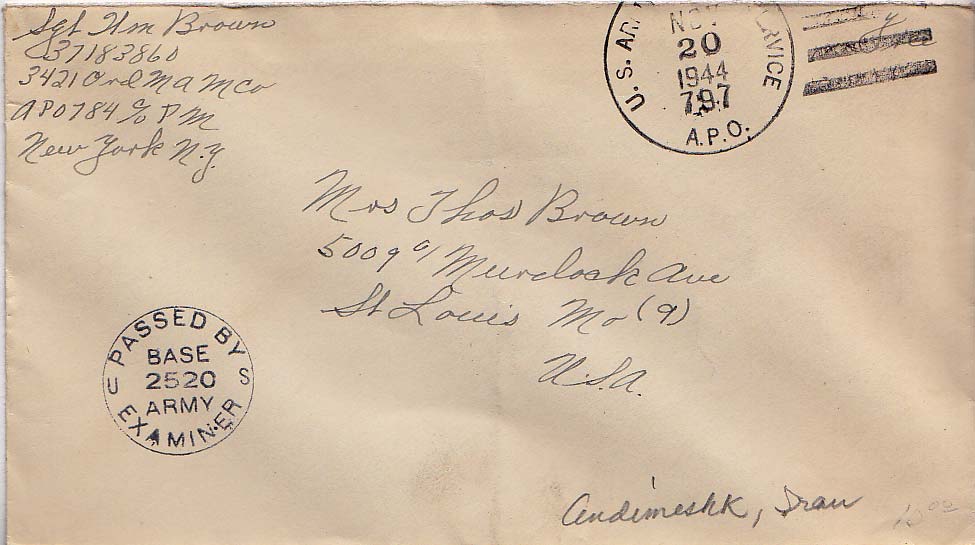 Sgt Wm Brown
37183860
3421 Ord M A M Co
APO 784 c/o P M
New York N.Y.
U. S. ARMY SERVICE
NOV
20
1944
797
A.P.O.
Free
Mrs Thos Brown
5009 a/ Murdock Ave
St Louis Mo (9)
U.S.A.
PASSED BY
BASE
U 2520 S
ARMY
EXAMINER
Andimeshk, Iran
10 00